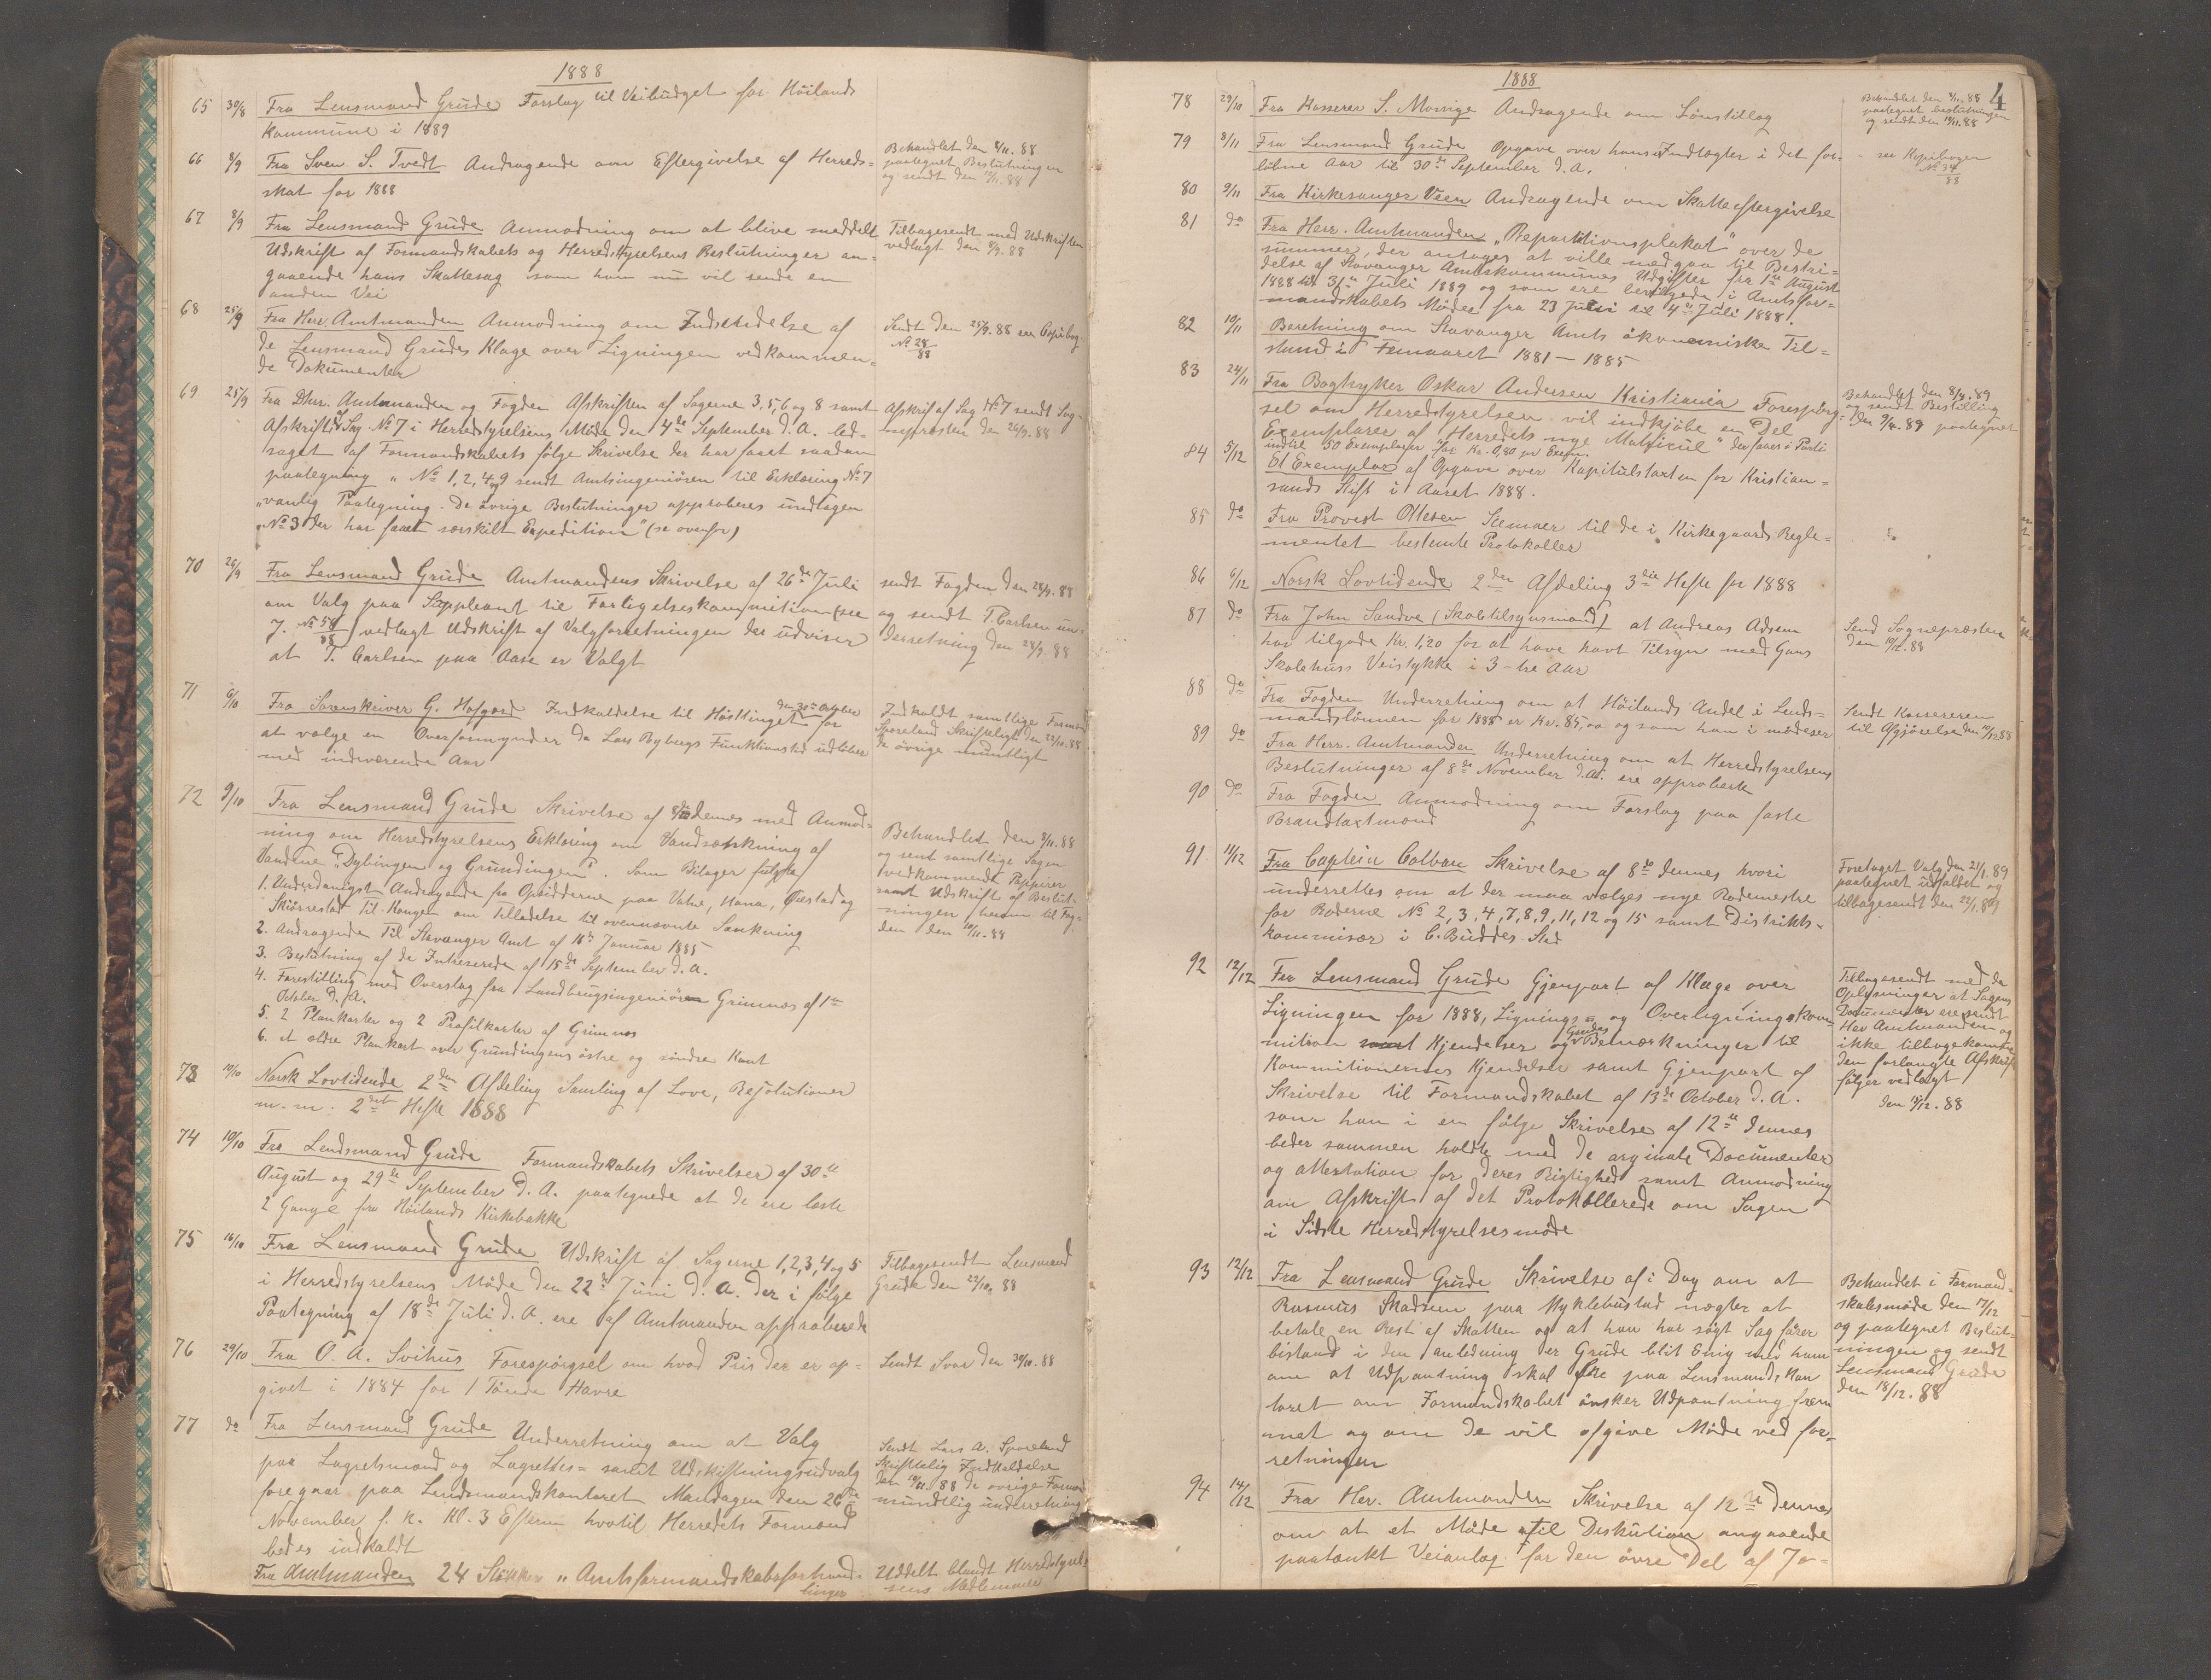 1888
65 30/8 Fra Lensmand Grude Forslag til Veibudget for Höilands
Kommune i 1889
66 8/9 Fra Sven S. Tvedt Andragende om Eftergivelse af Herreds=
skat for 1888
Behandlet den 8/11. 88
paategnet Beslutningen
og sendt den 10/11. 88
67 8/9 Fra Lensmand Grude Anmodning om at blive meddelt
Udskrift af Formandskabets og Herredstyrelsens Beslutninger an=
gaaende hans Skattesag som han nu vil sende en
anden Vei
Tilbagesendt med Udskriften
vedlagt den 8/9. 88
68 25/9 Fra Herr. Amtmanden Anmodning om Indsendelse af
de Lensmand Grudes Klage over Ligningen vedkommen=
de Dokumenter
Sendt den 25/9. 88 se Copibog
No 28/88
69 25/9 Fra Dhrr. Amtmanden og Fogden Afskriften af Sagerne 3, 5, 6 og 8 samt
Afskrift af Sag No 7 i Herredstyrelsens Møde den 4de September d. A. led=
saget af Formandskabets følge Skrivelse der har faaet saadan
paategning „No 1, 2, 4 og 9 sendt Amtsingeniören til Erklæring No 7
„vanlig Paategning. De övrige Beslutninger approberes undtagen
„No 3 der har faaet særskilt Expedition" (se ovenfor)
Afskrif af Sag No 7 sendt Sog-
nepresten den 26/9. 88
70 26/9 Fra Lensmand Grude Amtmandens Skrivelse af 26de Juli
om Valg paa Suppleant til Forligelseskommitionen (see
J. No 54/88) vedlagt Udskrift af Valgforretningen der udviser
at T. Carlsen paa Aase er Valgt
sendt Fogden den 28/9. 88
og sendt T. Carlsen un-
derretning den 28/9. 88
71 6/10 Fra Sorenskriver G. Hofgard Indkaldelse til Hösttinget den 30te Oktober for
at vælge en Overformynder da Lars Bybergs Funktionstid udlöber
med indeværende Aar
Indkaldt samtlige Formænd
Skoreland Skriftligt den 22/10. 88
de övrige mundtligt
72 9/10 Fra Lensmand Grude Skrivelse af 8de dennes med Anmod=
ning om Herredstyrelsens Erklæring om Vandsænkning af
Vandene "Dybingen og Grundingen". Som Bilager fulgte
1. Underdanigst Andragende fra Opsidderne paa Vatne, Hana, Østad og
Skiörrestad til Kongen om Tilladelse til ovennævnte Sænkning
2. Andragende til Stavanger Amt af 18de Januar 1885
3. Beslutning af de Intreserede af 15de September d. A.
4. Forestilling med Overslag fra Landbrugsingeniören Grimnes af 1ste
October d. A.
5. 2 Plankarter og 2 Profilkarter af Grimnes
6. et ældre Plankart over Grundingens östre og söndre Kant
Behandlet den 8/11. 88
og sent samtlige Sagen
vedkommende Pappirer
samt Udskrift af Beslut-
ningen herom til Fog-
den den 10/11. 88
73 10/10 Norsk Lovtidende 2den Afdeling Samling af Love, Resolutioner
m. m. 2det Hefte 1888
74 10/10 Fra Lendsmand Grude Formandskabets Skrivelser af 30te
August og 29de September d. A. paategnede at de ere læste
2 Gange fra Höilands Kirkebakke
75 16/10 Fra Lensmand Grude Udskrift af Sagerne 1, 2, 3, 4 og 5
i Herredstyrelsens Møde den 22de Juni d. A. der i følge
Paategning af 18de Juli d. A. ere af Amtmanden approberede
Tilbagesendt Lensmand
Grude den 22/10. 88
76 29/10 Fra O. A. Svihus Forespörgsel om hvad Pris der er op=
givet i 1884 for 1 Tönde Havre
Sendt Svar den 30/10. 88
77 do Fra Lensmand Grude Underretning om at Valg
paa Lagretsmænd og Lagrettes= samt Udskiftningsudvalg
foregaar paa Lendsmandskontoret Mandagen den 26de
November f. k. Kl. 3 Efterm hvortil Herredets Formænd
bedes indkaldt
Sendt Lars A. Sporeland
Skriftlig Indkaldelse
den 10/11. 88 de övrige Formænd
mundtlig underretning
Fra Amtmanden 24 Stykker „Amtsformandskabsforhand-
linger
Uddelt blandt Herredstyrel-
sens Medlemmer
1888
4
78 29/10 Fra Kasserer S. Mossige Andragende om Lönstillæg
Behandlet den 8/11. 88
paategnet beslutningen
og sendt den 10/11. 88
79 8/11 Fra Lensmand Grude Opgave over hans Indtægter i det for=
löbne Aar til 30de September d. A.
see Kopibogen
No 34/88
80 9/11 Fra Kirkesanger Veen Andragende om Skatteeftergivelse
81 do Fra Herr. Amtmanden „Repartitionsplakat" over de
summer, der antages at ville medgaa til Bestri=
delse af Stavanger Amtskommunes Udgifter fra 1ste August
1888 til 31te Juli 1889 og som ere bevilgede i Amtsfor=
mandskabets Møder fra 23 Juni til 4de Juli 1888.
82 10/11 Beretning om Stavanger Amts ökonomiske Til=
stand i Femaaret 1881 — 1885
83 24/11 Fra Bogtryker Oskar Andersen Kristiania Forespörg=
sel om Herredstyrelsen vil indkjöbe en Del
Exemplarer af "Herredets nye Matricul" der faaes i Parti
indtil 50 Exemplarer for Kr. 0,80 pr Exepm.
Behandlet den 8/4. 89
og sendt Bestilling
den 9/4. 89 paategnet
84 5/12 Et Exemplar af Opgave over Kapitulstaxten for Kristian=
sands Stift i Aaret 1888.
85 do Fra Provst Ottesen Skemaer til de i Kirkegaards Regle=
mentet bestemte Protokoller
86 6/12 Norsk Lovtidende 2den Afdeling 3die Hefte for 1888
87 do Fra John Sandve (Skoletilsynsmand) at Andreas Adsem
har tilgode Kr. 1,20 for at have havt Tilsyn med Gans
Skolehuss Veistykke i 3 - tre Aar
Send Sognepræsten
den 10/12. 88
88 do Fra Fogden Underretning om at Höilands Andel i Lends=
mandslönnen for 1888 er Kr. 85,00 og som han i mödeser
Sendt Kassereren
til Afgjörelse den 10/12 88
89 do Fra Herr. Amtmanden Underretning om at Herredstyrelsens
Beslutninger af 8de November d. A. ere approberte
90 do Fra Fogden Anmodning om Forslag paa faste
Brandtaxtmænd
91 11/12 Fra Captein Colban Skrivelse af 8de dennes hvori
underrettes om at der maa vælges nye Rodemestre
for Roderne No 2, 3, 4, 7, 8, 9, 11, 12 og 15 samt Distrikts-
kommisær i C. Buddes Sted
Foretaget Valg den 21/1. 89
paategnet udfaldet og
tilbagesendt den 22/1. 89
92 12/12 Fra Lensmand Grude Gjenpart af Klage over
Ligningen for 1888, Lignings= og Overligningskom=
mition samt Kjendelser og Grudes Bemærkninger til
Kommitionernes Kjendelser samt Gjenpart af
Skrivelse til Formandskabet af 13de October d. A.
som han i en følge Skrivelse af 12te dennes
beder sammen holdte med de orginale Documenter
og attestation for deres Rigtighed samt Anmodning
om Afskrift af det Protokollerede om Sagen
i Sidste Herredstyrelsesmöde
Tilbagesendt med de
Oplysninger at Sagens
Documenter ere sendt
Her Amtmanden og
ikke tilbagekomne
den forlangte Afskrift
følger vedlagt
den 18/12. 88
93 12/12 Fra Lensmand Grude Skrivelse af i Dag om at
Rasmus Skadsem paa Myklebustad nægter at
betale en Rest af Skatten og at han har sögt Sagförer
bistand i den anledning er Grude blit Enig med ham
om at Udpantning skal ske paa Lensmands Kon
toret om Formandskabet önsker Udpantning frem
met og om de vil afgive Møde ved for=
retningen
Behandlet i Formand-
skabsmøde den 17/12
og paategnet Beslut-
ningen og sendt
Lensmand Grude
den 18/12. 88
94 14/12 Fra Her. Amtmanden Skrivelse af 12te dennes
om at et Møde til Diskution angaaende
paatænkt Veianlæg for den övre Del af Jo=